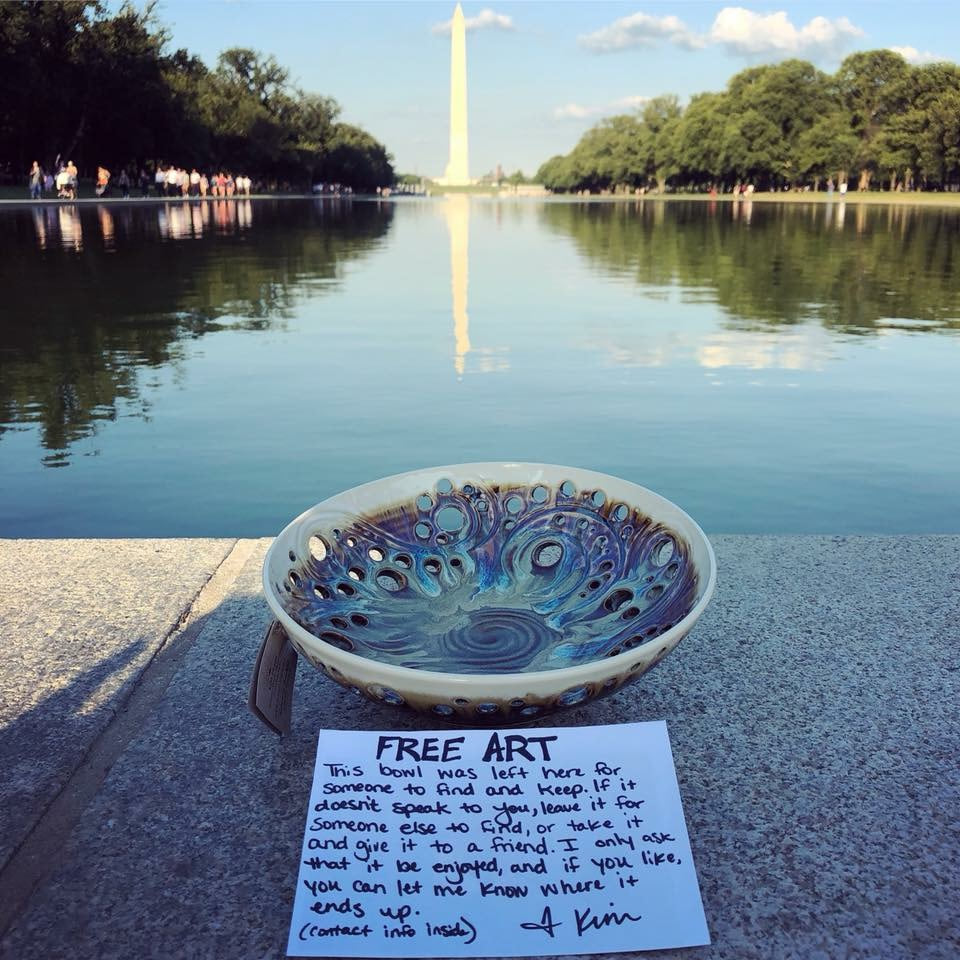 FREE ART
This bowl was left here for
someone to find and keep. If it
doesn't speak to you, leave it for
someone else to find, or take it
and give it to a friend. I only ask
that it be enjoyed, and if you like,
you can let me know where it
ends up.
(contact info inside) Kim